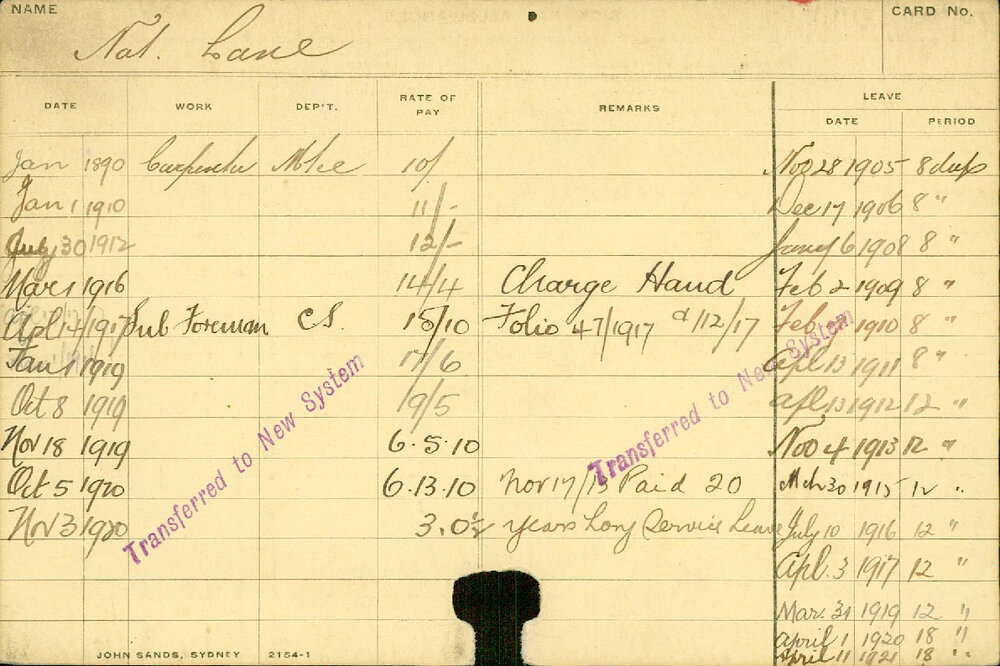 NAME
CARD No.
Nat. Lane
DATE WORK DEP'T. RATE OF PAY REMARKS LEAVE
DATE PERIOD
Jan 1890 Carpenter 10/ Nov 28 1905 8 days
Jan 1 1910 11/- Dec 17 1906 8 "
July 30 1912 12/- Jany 6 1908 8 "
Mar 1 1916 14/4 Charge Hand Feb 2 1909 8 "
Apl 14/1917 Sub Foreman C.S. 15/10 Folio 47/1917 d/12/17 Feb 1910 8 "
Jan 1 1919 17/6 Apl 13 1911 8 "
Oct 8 1919 19/5 Apl 13 1912 12 "
Nov 18 1919 6.5.10 Nov 4 1913 12 "
Oct 5 1920 6.13.10 Nov 17/13 Paid 20 Mch 30 1915 12 "
Nov 3 1920 3.0½ years Long Service Leave July 10 1916 12 "
Apl. 3 1917 12 "
Mar. 31 1919 12 "
April 1 1920 18 "
April 11 1921 18 "
Transferred to New System
Transferred to New System
JOHN SANDS, SYDNEY 2154-1